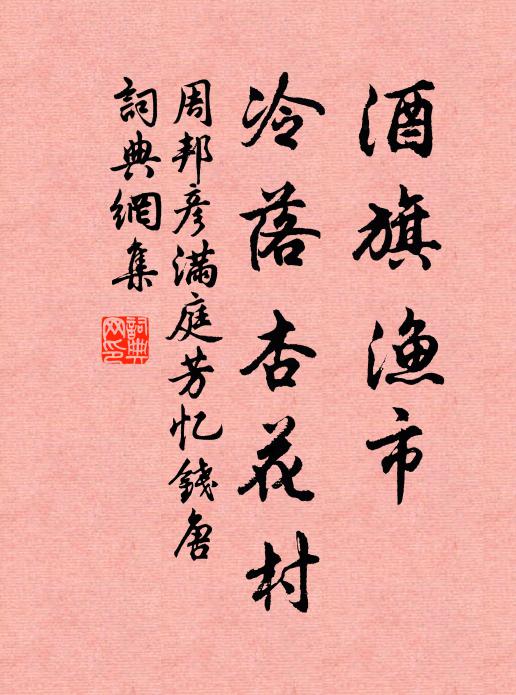 酒旗渔市
冷落杏花村
周邦彦满庭芳忆錢唐
詞典網集
詞典
网印